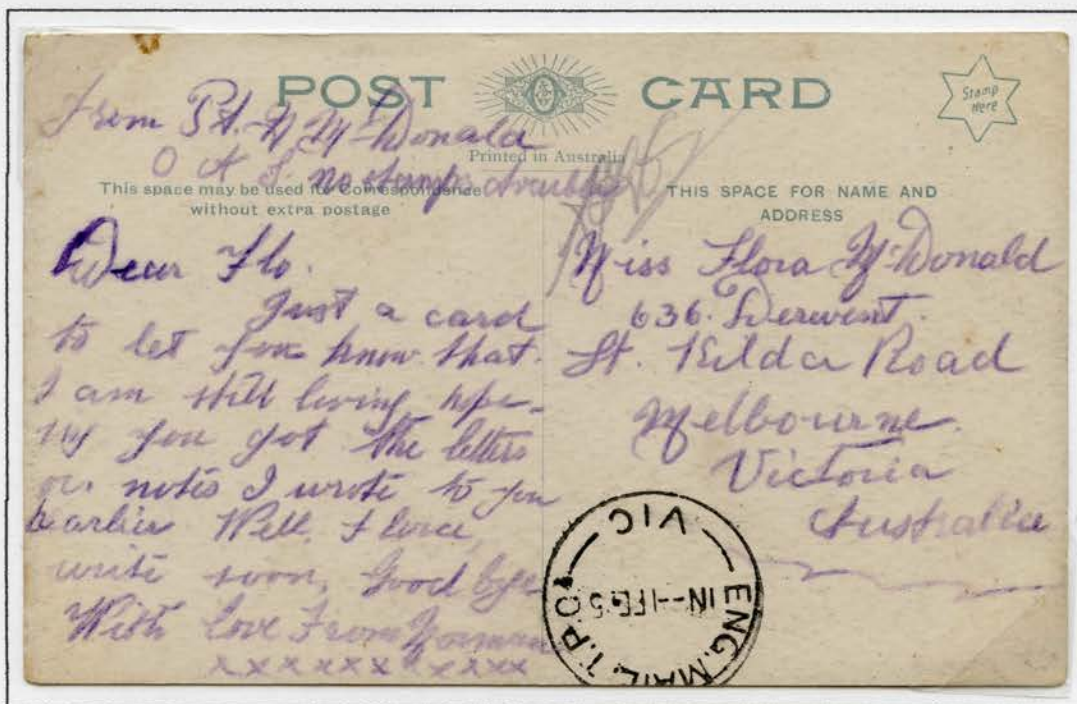 POST CARD
Stamp Here
From Pt. N McDonald
Printed in Australia
O A S. no stamps available
This space may be used for Correspondence
without extra postage
THIS SPACE FOR NAME AND
ADDRESS
Dear Flo.
Just a card
to let you know that
I am still living, hope-
ing you got the letters
or notes I wrote to you
earlier Well, Flora
write soon, Good bye
With love From Norman
x x x x x x x x x x x
Miss Flora McDonald
636. Derwent.
St. Kilda Road
Melbourne.
Victoria
Australia
ENG. MAIL. T.P.O. 1
VIC
IN -1 FE